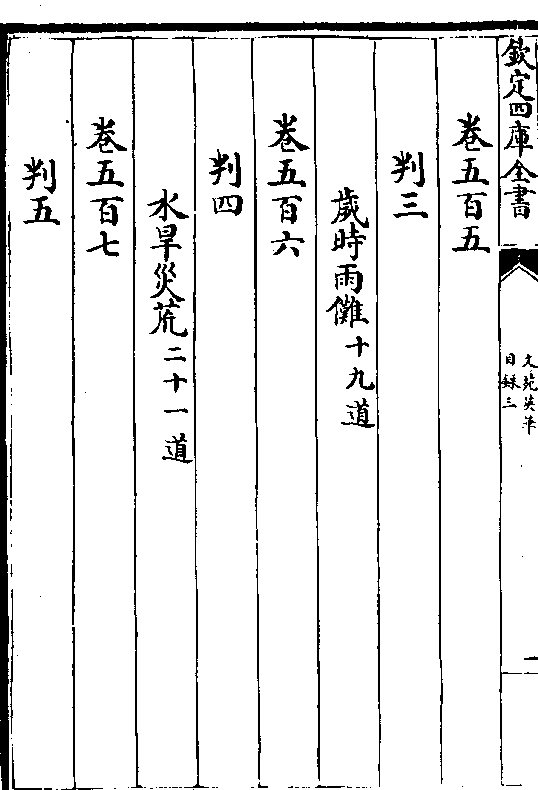 欽定四庫全書
文苑英華
目録三
卷五百五
判三
歲時雨儺十九道
卷五百六
判四
水旱災荒二十一道
卷五百七
判五